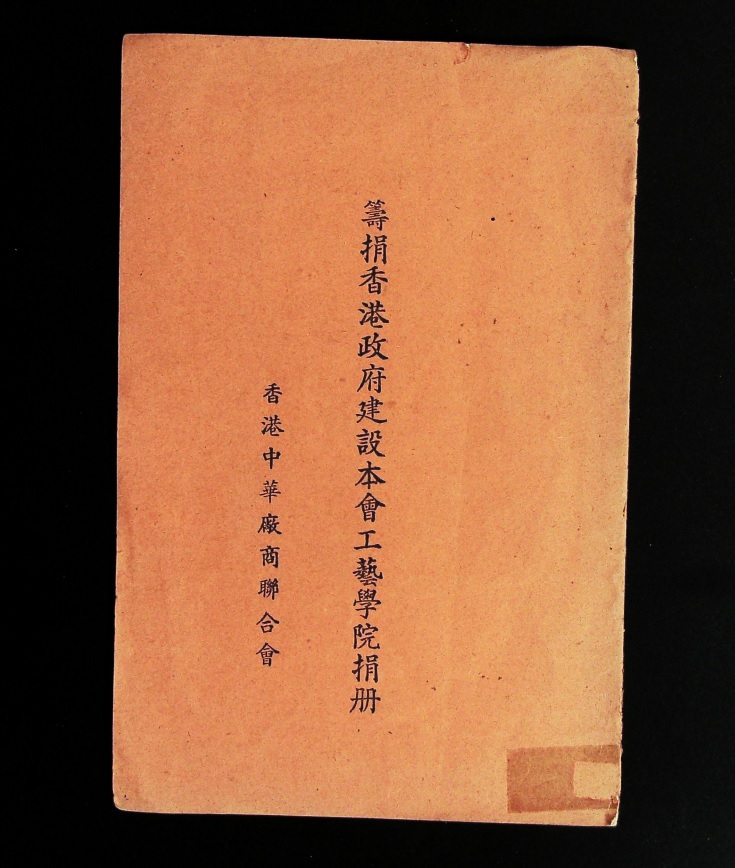 籌捐香港政府建設本會工藝學院捐册
香港中華廠商聯合會